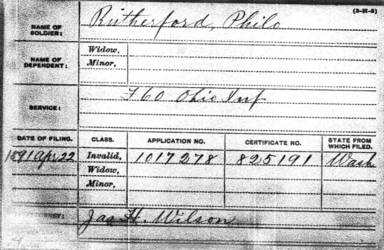 (3-21-5)
NAME OF SOLDIER: Rutherford, Philo
NAME OF DEPENDENT: Widow,
Minor,
SERVICE: F 60 Ohio Inf
DATE OF FILING. CLASS. APPLICATION NO. CERTIFICATE NO. STATE FROM WHICH FILED.
1891 Apr 22 Invalid, 1017278 825191 Wash
Widow,
Minor,
Jas H. Wilson